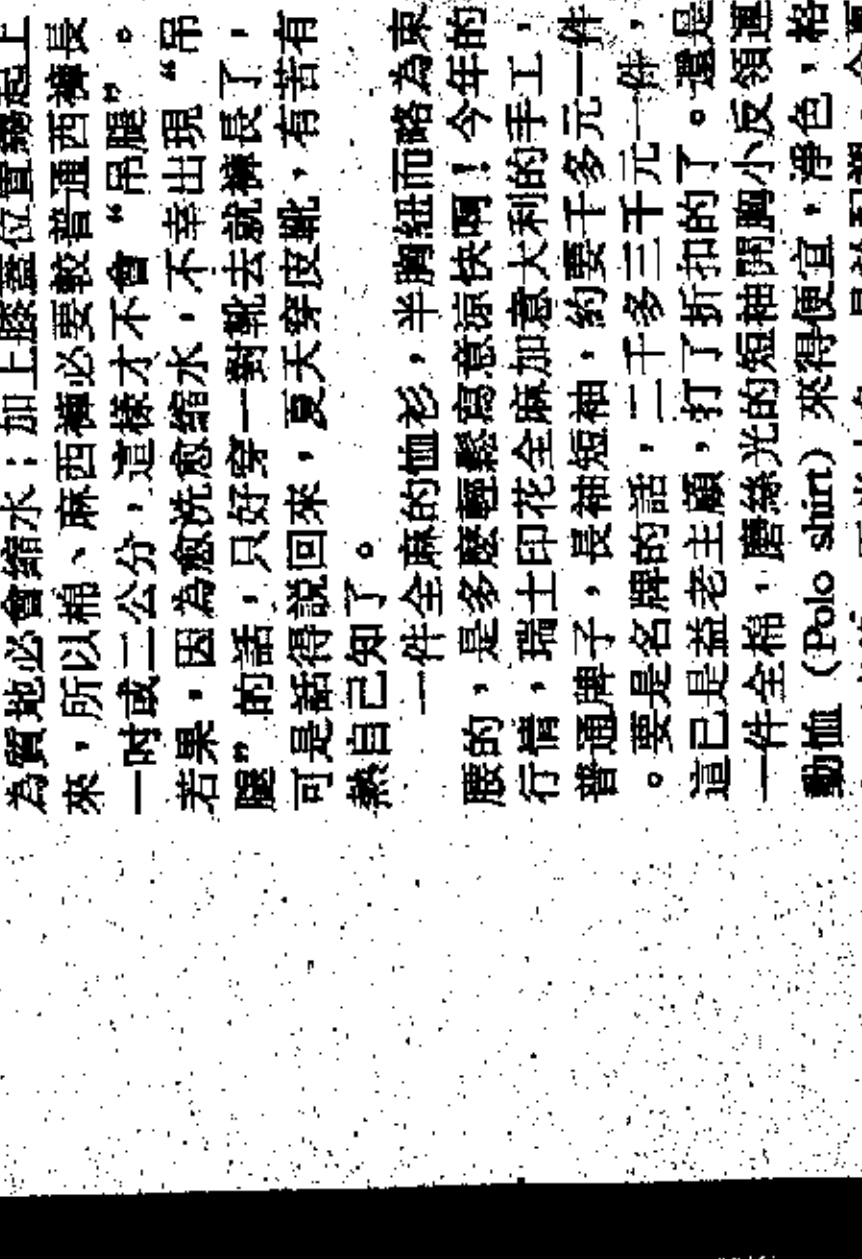 為質地必會縮水；加上膝蓋位置縐起上
來，所以棉、麻西褲必要較普通西褲長
一吋或二公分，這樣才不會“吊腿”。
若果，因為愈洗愈縮水，不幸出現“吊
腿”的話，只好穿一對靴去就褲長了，
可是話得説回來，夏天穿皮靴，有苦有
熱自己知了。
一件全麻的恤衫，半胸紐而略為束
腰的，是多麼輕鬆寫意涼快啊！今年的
行情，瑞士印花全麻加意大利的手工，
普通牌子，長袖短袖，約要千多元一件
。要是名牌的話，二千多三千元一件，
這已是益老主顧，打了折扣的了。還是
一件全棉，磨絲光的短袖開胸小反領運
動恤（Polo shirt）來得便宜，淨色，格